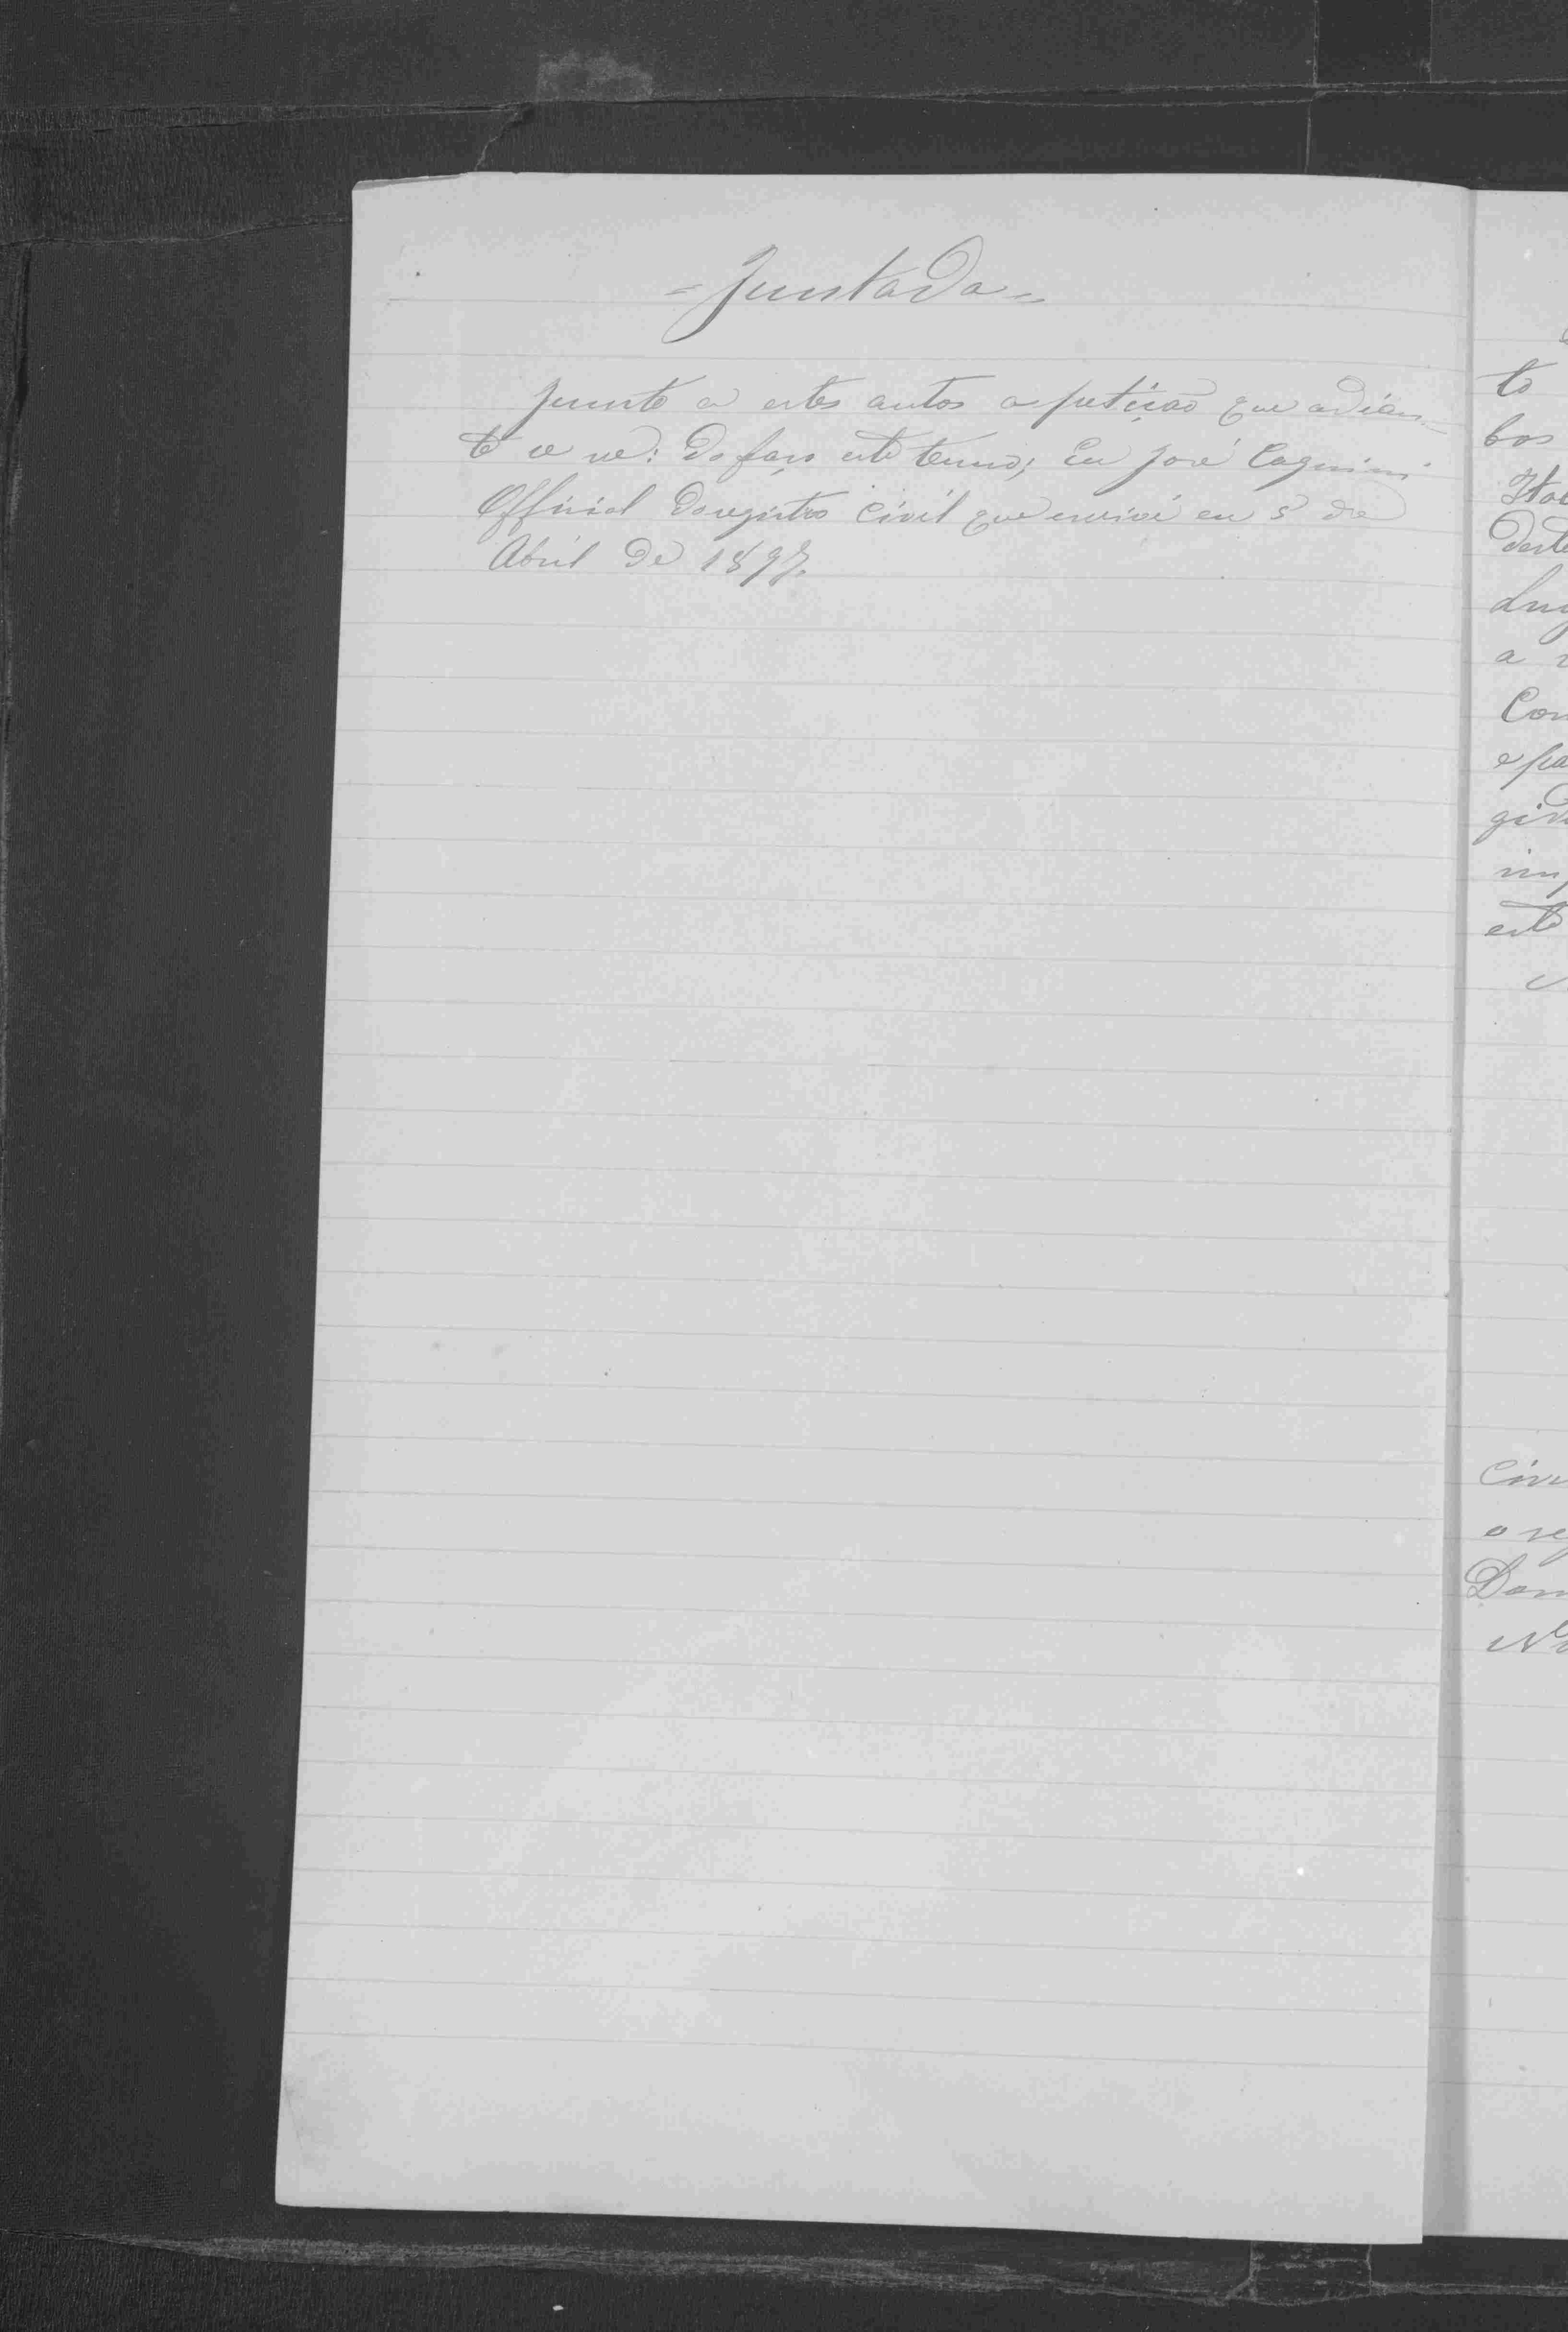 = Juntada =
Junto a estes autos a petição que adian-
te se ve: Do faço este termo; Eu José Cagnini
Official do registro Civil que escrivi em 5 de
Abril de 1897.
to
bos
deste
a
Con
e pa
gid
im
este
Civ
o re
Dom